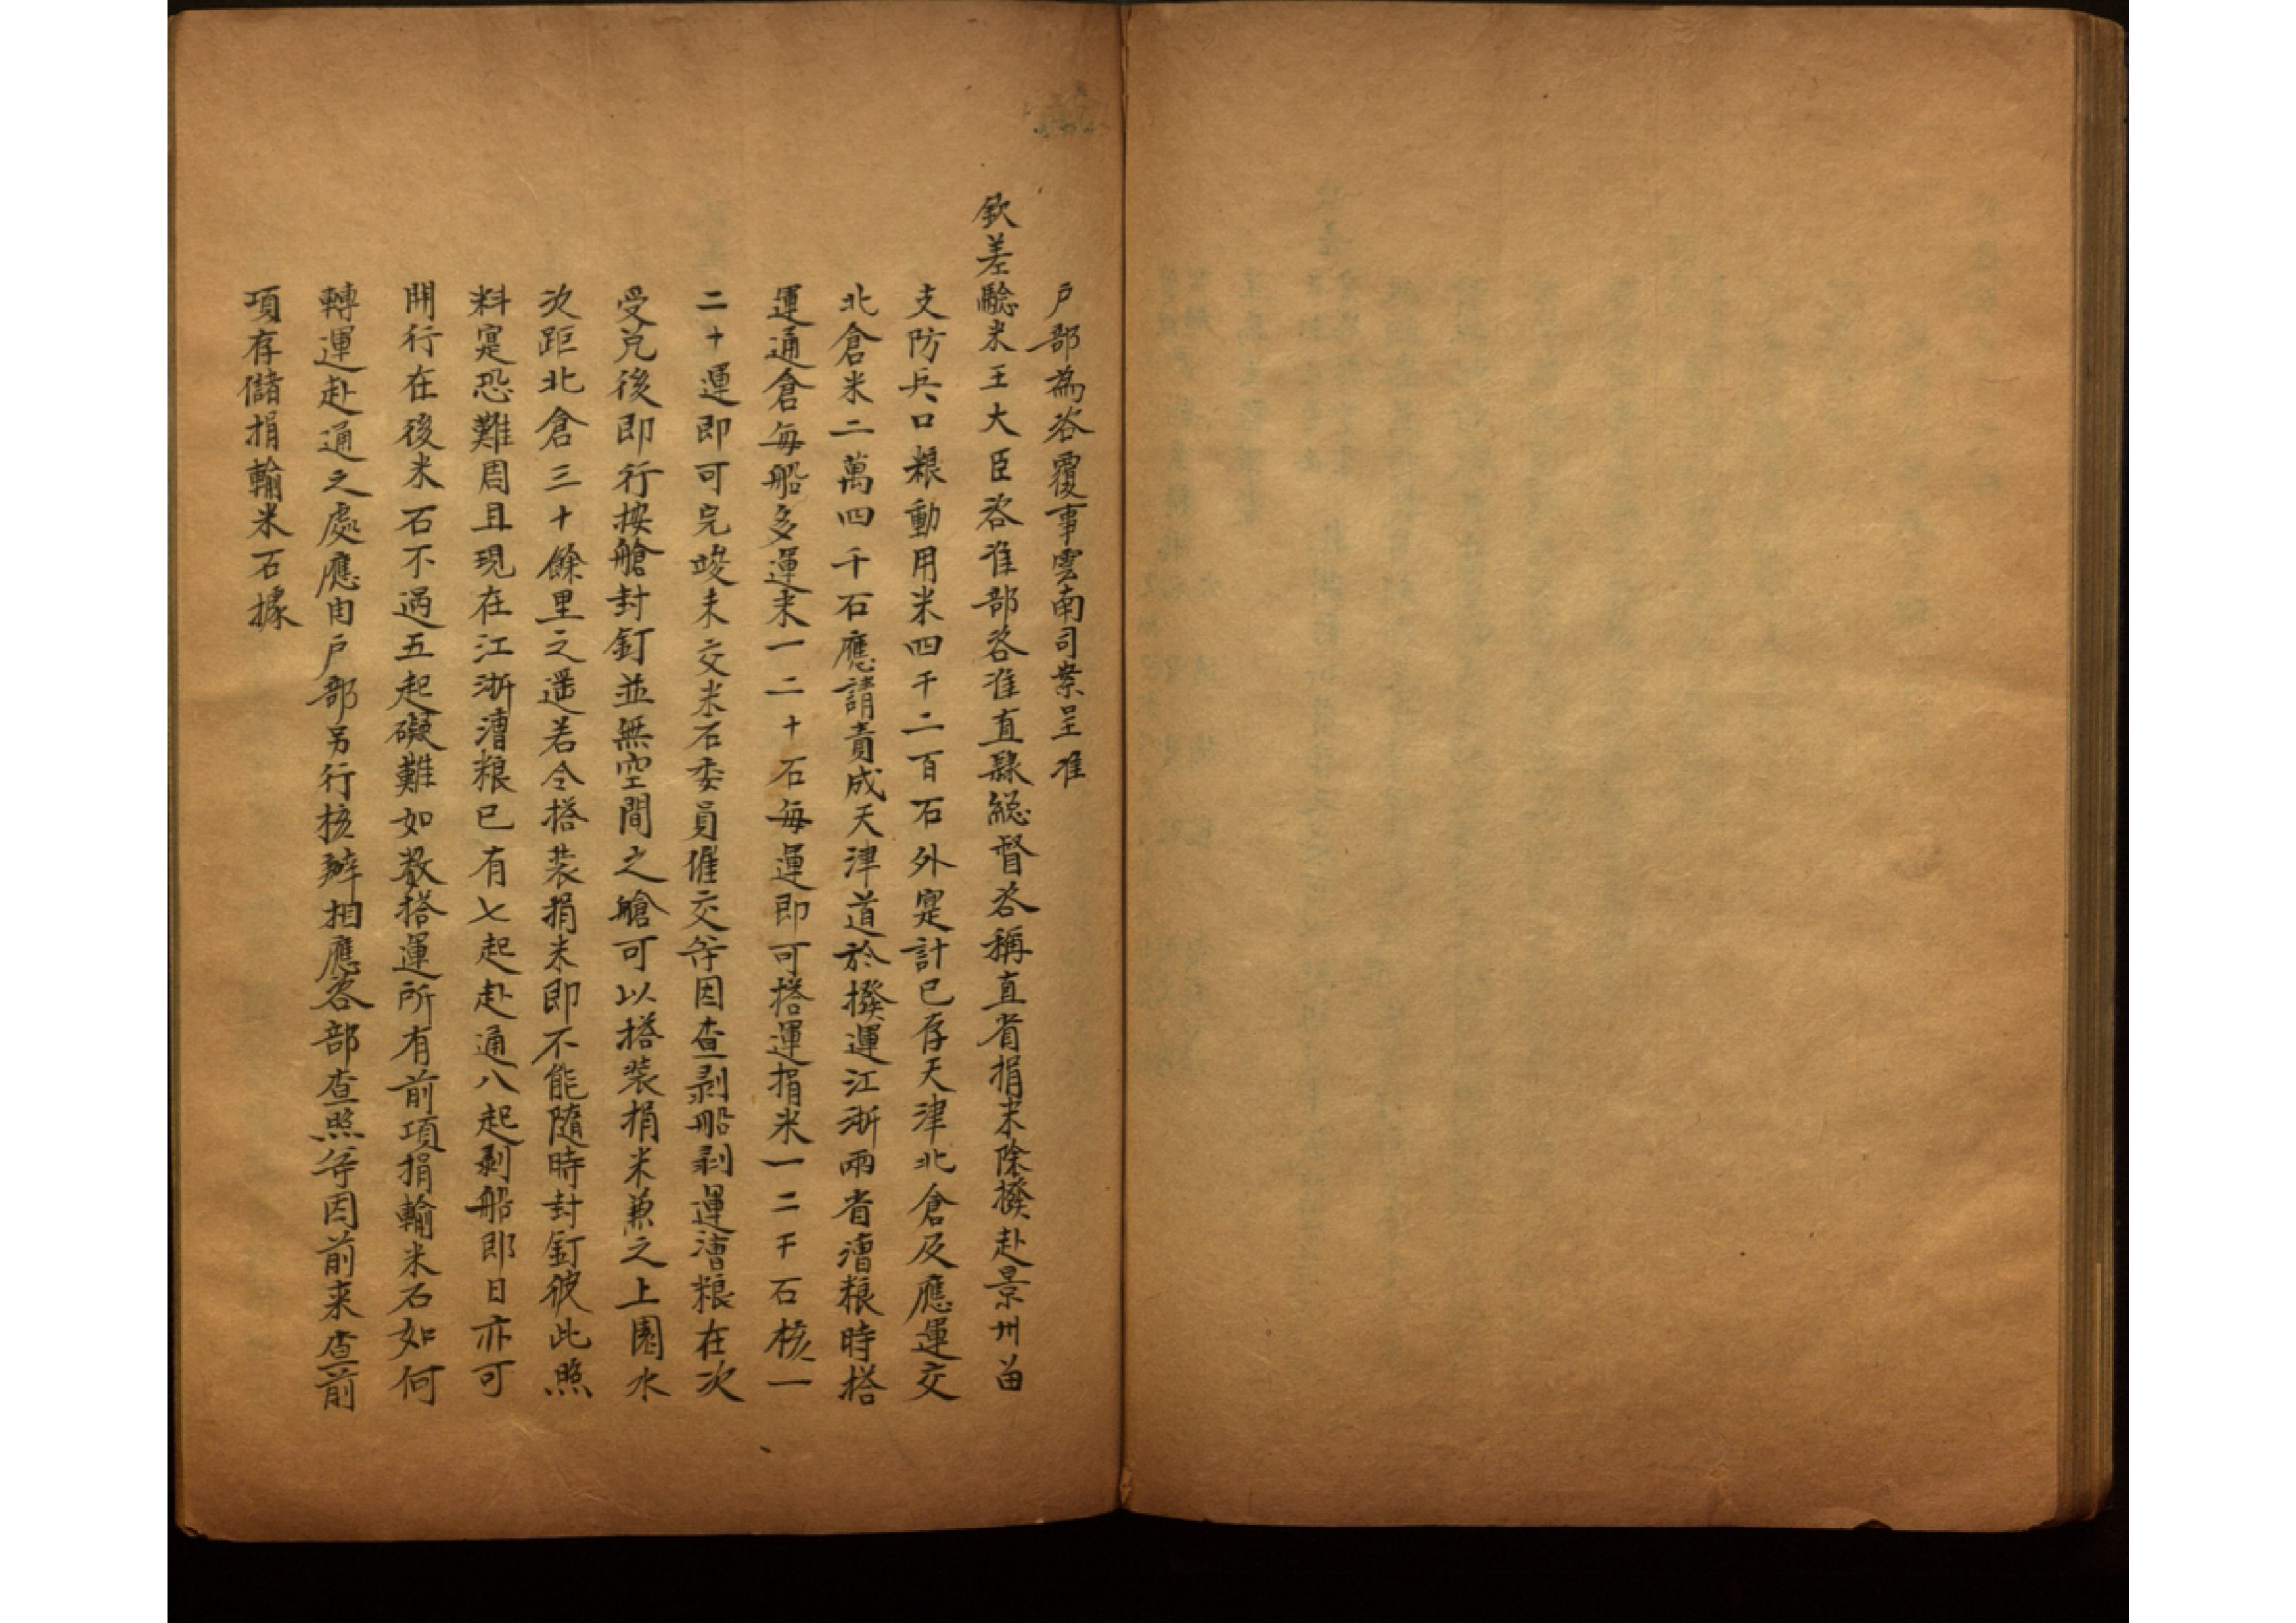 戶部為咨覆事雲南司案呈准
欽差驗米王大臣咨准部咨准直隸総督咨稱直省捐米除撥赴景州留
支防兵口粮動用米四千二百石外寔計已存天津北倉及應運交
北倉米二萬四千石應請責成天津道於撥運江浙兩省漕粮時搭
運通倉每船多運米一二十石每運即可搭運捐米一二千石核一
二十運即可完竣未交米石委員催交等因查剥船剥運漕粮在次
受兑後即行按艙封釘並無空間之艙可以搭裝捐米兼之上園水
次距北倉三十餘里之遥若令搭装捐米即不能隨時封釘彼此照
料寔恐難周且現在江浙漕粮已有七起赴通八起剥船即日亦可
開行在後米石不過五起礙難如数搭運所有前項捐輸米石如何
轉運赴通之處應由戶部另行核辦相應咨部查照等因前来查前
項存儲捐輸米石據